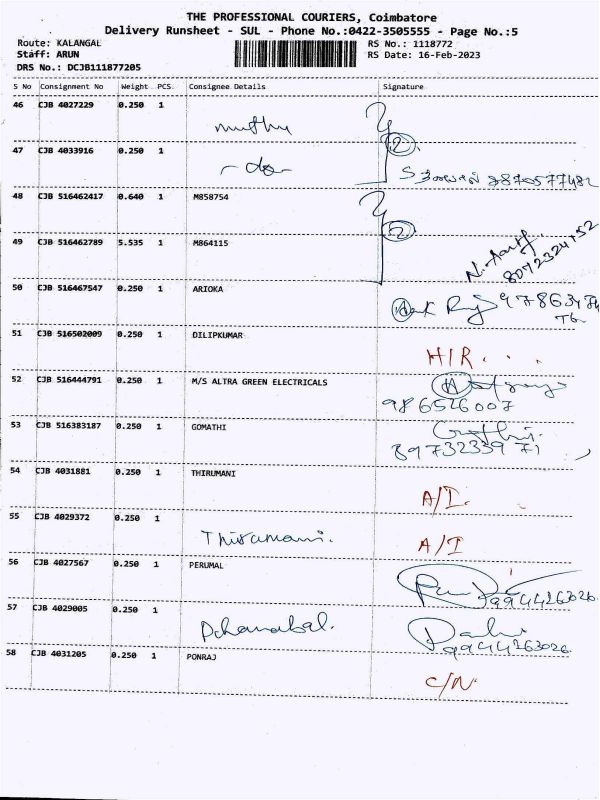 THE PROFESSIONAL COURIERS, Coimbatore
Delivery Runsheet - SUL - Phone No.:0422-3505555 - Page No.:5
Route: KALANGAL RS No.: 1118772
Staff: ARUN RS Date: 16-Feb-2023
DRS No.: DCJB111877205
S No Consignment No Weight PCS. Consignee Details Signature
46 CJB 4027229 0.250 1
muthu
2
47 CJB 4033916 0.250 1
-do-
48 CJB 516462417 0.640 1 M858754
2
49 CJB 516462789 5.535 1 M864115
50 CJB 516467547 0.250 1 ARIOKA
51 CJB 516502009 0.250 1 DILIPKUMAR
H/R . . .
52 CJB 516444791 0.250 1 M/S ALTRA GREEN ELECTRICALS
986526007
53 CJB 516383187 0.250 1 GOMATHI
8973233971
54 CJB 4031881 0.250 1 THIRUMANI
A/I.
55 CJB 4029372 0.250 1
Thirumani. A/I
56 CJB 4027567 0.250 1 PERUMAL
9944263026
57 CJB 4029005 0.250 1
Dhanabal.
9944263026
58 CJB 4031205 0.250 1 PONRAJ
C/N.